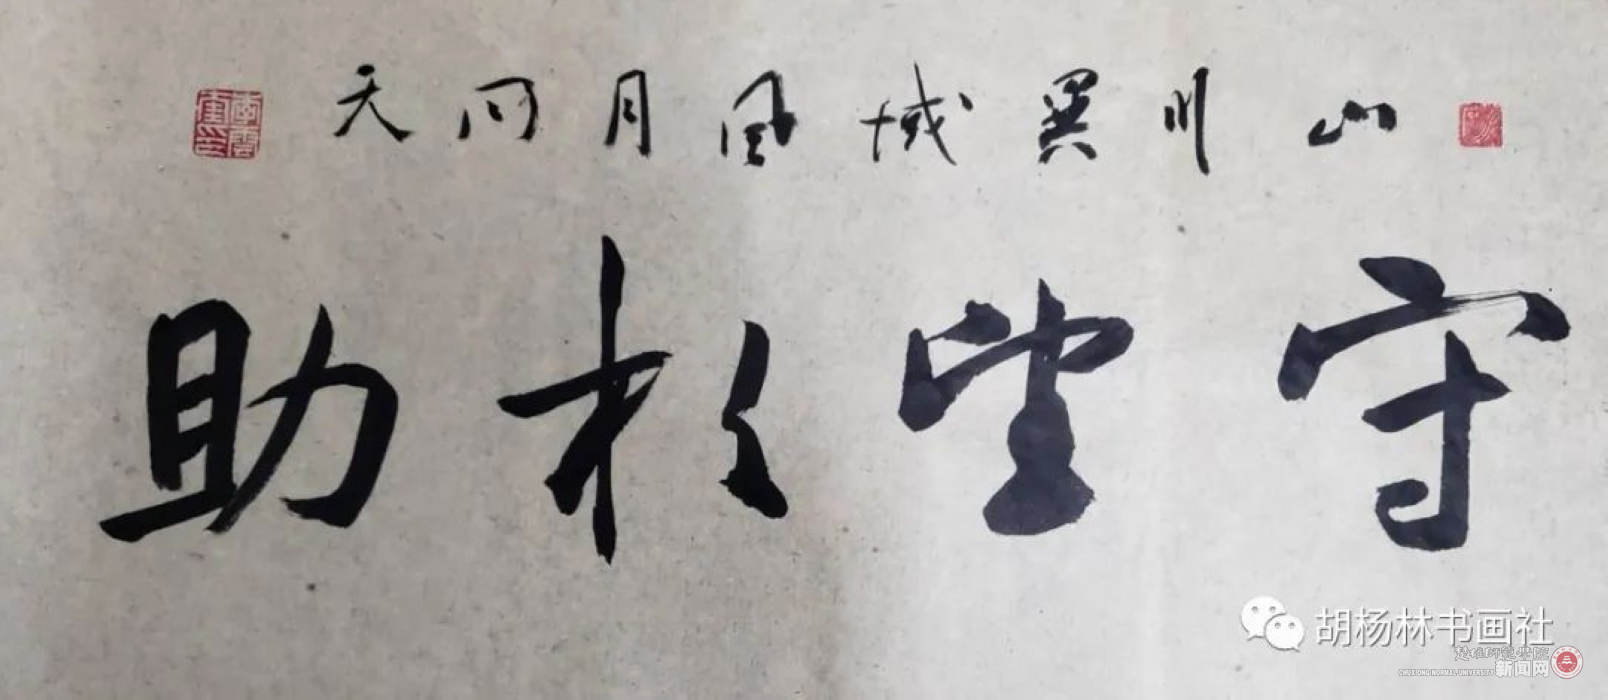 山川异域风月同天
守望相助
胡杨林书画社
楚雄师范学院
CHUXIONG NORMAL UNIVERSITY
新闻网